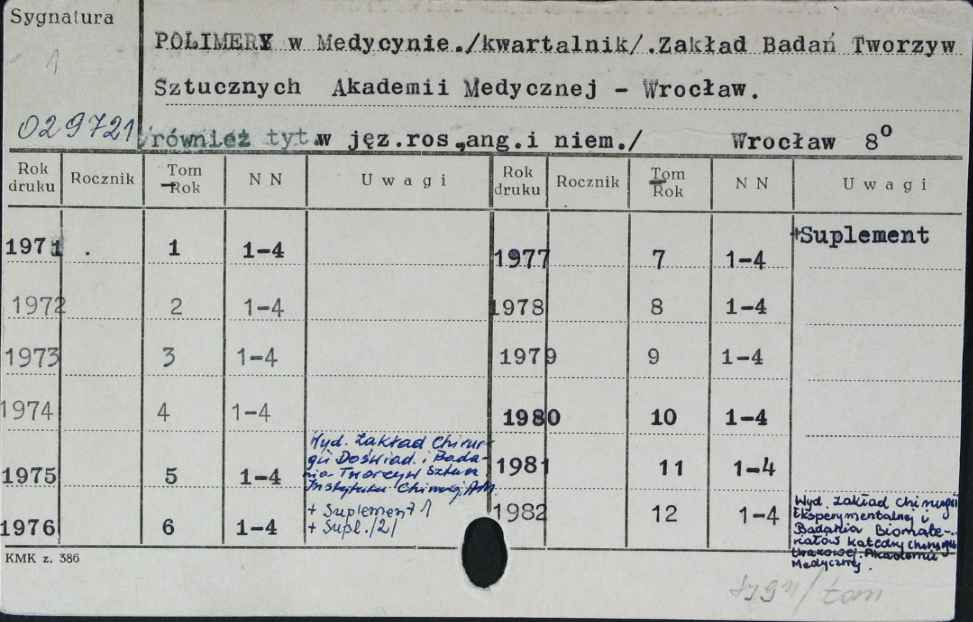 Sygnatura
1
029721
POLIMERY w Medycynie./kwartalnik/.Zakład Badań Tworzyw
Sztucznych Akademii Medycznej - Wrocław.
/również tyt.w jęz.ros.,ang.i niem./ Wrocław 8°
Rok druku Rocznik Tom Rok NN Uwagi Rok druku Rocznik Tom Rok NN Uwagi
1971 . 1 1-4 1977 7 1-4 +Suplement
1972 2 1-4 1978 8 1-4
1973 3 1-4 1979 9 1-4
1974 4 1-4 1980 10 1-4
1975 5 1-4 Wyd. Zakład Chirur-
gii Doświad. i Bada-
nia Tworzyw Sztucz.
Instytutu Chirurg. AM.
1981 11 1-4
1976 6 1-4 + Suplement 1
+ Supl. /2/
1982 12 1-4 Wyd. Zakład Chirurgii
Eksperymentalnej i
Badania Biomate-
riałów Katedry Chirurgii
Urazowej. Akademii
Medycznej.
KMK z. 386
tygn/tom